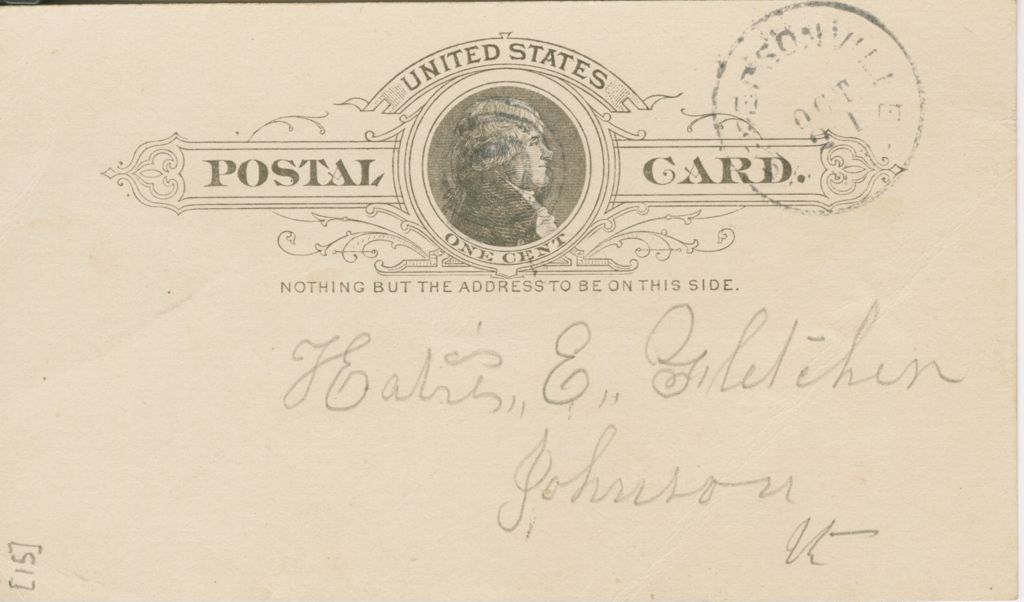 UNITED STATES
POSTAL CARD.
ONE CENT
NOTHING BUT THE ADDRESS TO BE ON THIS SIDE.
OCT
E, Fletcher
Johnson
Vt
[15]